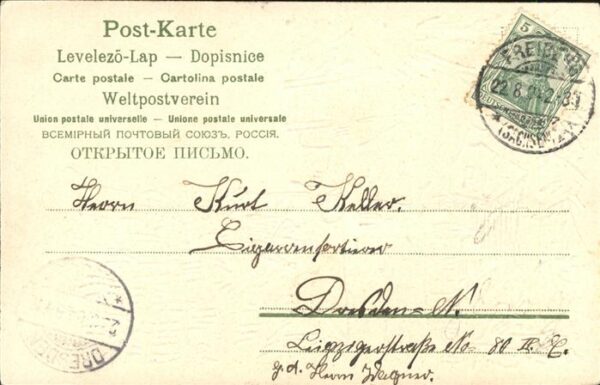 Post-Karte
Levelező-Lap — Dopisnice
Carte postale — Cartolina postale
Weltpostverein
Union postale universelle — Unione postale universale
ВСЕМІРНЫЙ ПОЧТОВЫЙ СОЮЗЪ. РОССІЯ.
ОТКРЫТОЕ ПИСЬМО.
5
FREIBERG
22.8.
(SACHSEN)
Herrn Kurt Keller.
Cigarrensortierer
Dresden-N.
Leipzigerstraße No 80 II. E.
z. d. Herrn Wagner.
DRESDEN